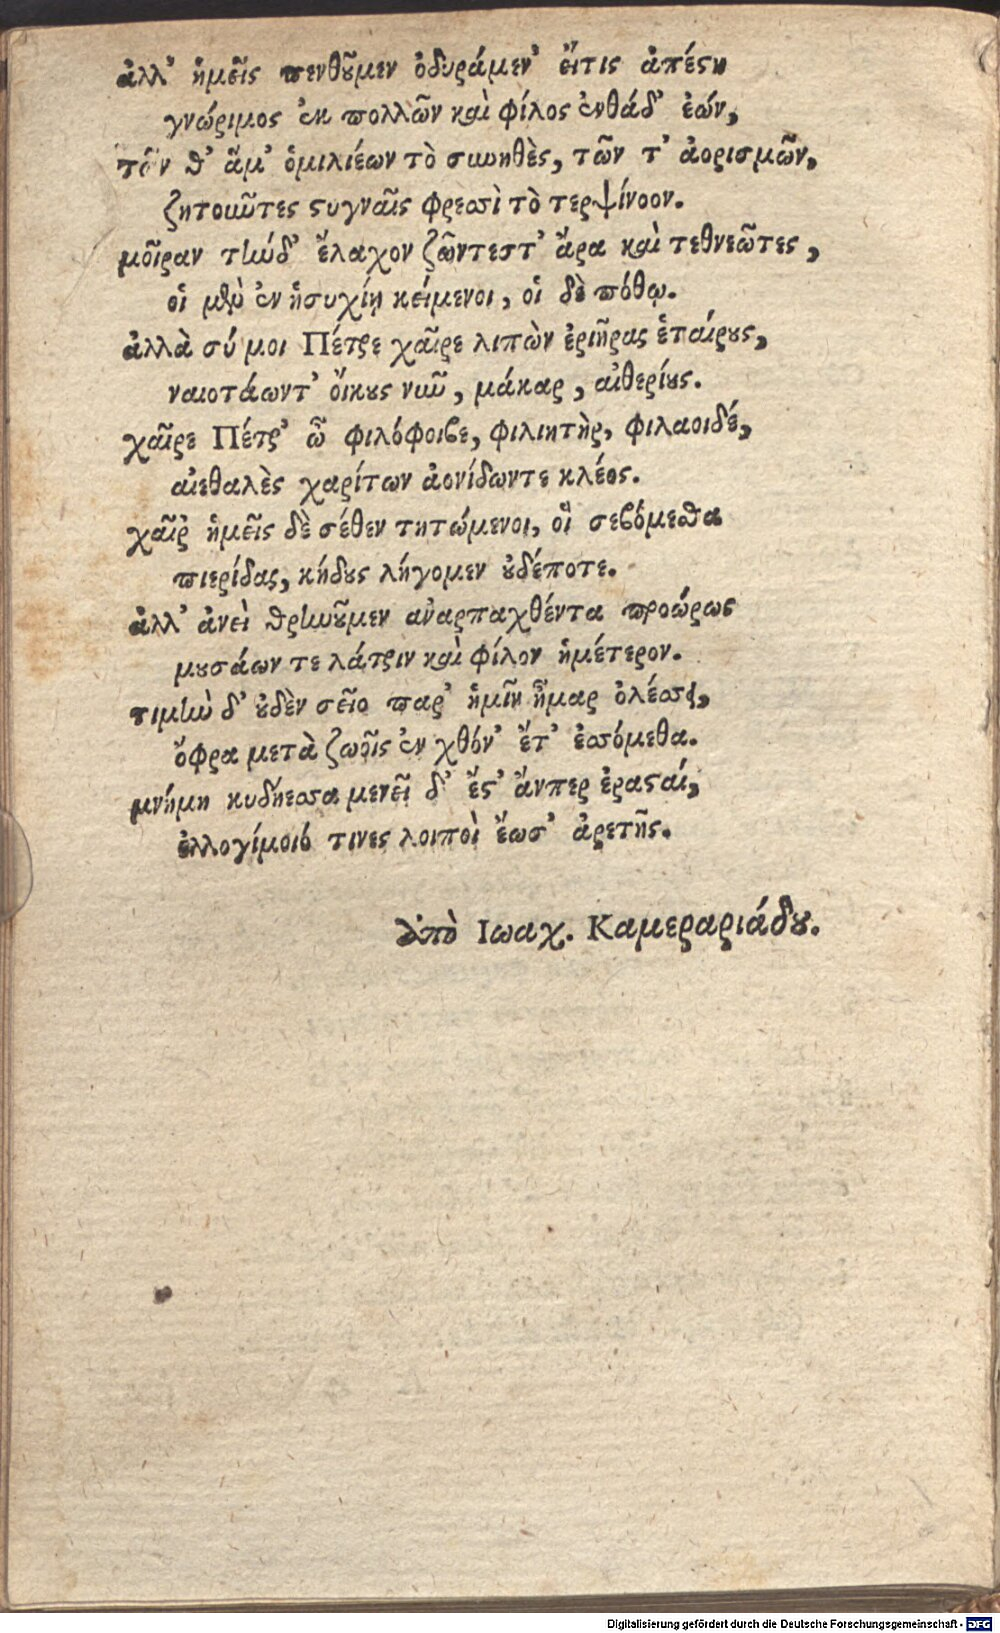 ἀλλ' ἡμεῖς πενθοῦμεν ὀδυράμεν' εἴτις ἀπέστη
γνώριμος ἐκ πολλῶν καὶ φίλος ἐνθάδ' ἐών,
τῶν θ' ἅμ' ὁμιλιέων τὸ συνηθὲς, τῶν τ' ἀορισμῶν,
ζητοιῦτες στυγναῖς φρεσσὶ τὸ τερψίνοον.
μοῖραν τὴνδ' ἔλαχον ζῶντεστ' ἄρα καὶ τεθνεῶτες,
οἱ μὲν ἐν ἡσυχίῃ κείμενοι, οἱ δὲ πόθῳ.
ἀλλὰ σύ μοι Πέτρε χαῖρε λιπὼν ἐριῆρας ἑταίρους,
ναιοτάωντ' οἴκους νιῦ, μάκαρ, αἰθερίους.
χαῖρε Πέτρ' ὦ φιλόφοιβε, φιλιητὴρ, φιλαοιδέ,
αἰεθαλὲς χαρίτων ἀονίδωντε κλέος.
χαῖρ ἡμεῖς δὲ σέθεν τητώμενοι, οἳ σεβόμεσθα
πιερίδας, κήδους λήγομεν οὐδέποτε.
ἀλλ' ἀνεὶ θρηνοῦμεν ἀναρπαχθέντα προώρως
μουσάων τε λάτριν καὶ φίλον ἡμέτερον.
τιμὴν δ' οὐδὲν σεῖο παρ' ἡμῖν ἦμαρ ὀλέσσει,
ὄφρα μετὰ ζωοῖς ἐν χθόν' ἔτ' ἐσσόμεθα.
μνήμη κυδήεσσα μενεῖ δ' ἔστ' ἄνπερ ἐρασταί,
ἐλλογίμοιό τινες λοιποὶ ἔωσ' ἀρετῆς.
ἀπὸ Ιωαχ. Καμεραριάδου.
Digitalisierung gefördert durch die Deutsche Forschungsgemeinschaft - DFG